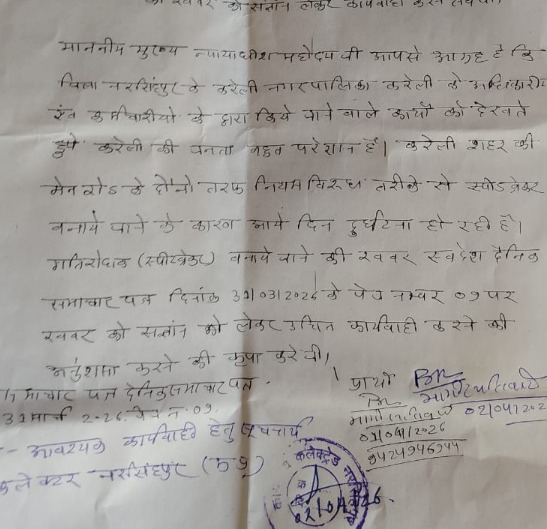 की खबर को संज्ञान लेकर कार्यवाही करने संबंधी।
माननीय मुख्य न्यायाधीश महोदय जी आपसे आग्रह है कि
जिला नरसिंहपुर के करेली नगरपालिका करेली के अधिकारी
एंव कर्मचारीयो के द्वारा किये जाने वाले कार्यों को देखते
हुये करेली की जनता बहुत परेशान है। करेली शहर की
मेन रोड के दोनो तरफ नियम विरुध तरीके से स्पीडब्रेकर
बनाये जाने के कारण आये दिन दुर्घटना हो रही है।
गतिरोधक (स्पीडब्रेकर) बनाये जाने की खबर स्वदेश दैनिक
समाचार पत्र दिनांक 31/03/2026 के पेज नम्बर 09 पर
खबर को संज्ञान को लेकर उचित कार्यवाही करने की
अनुशंसा करने की कृपा करे जी।
समाचार पत्र दैनिक समाचार पत्र.
31 मार्च 2-26 पेज न. 09
प्रार्थी
02/04/202
02/04/2026
9424946944
- आवश्यक कार्यवाही हेतु
कलेक्टर नरसिंहपुर (म प्र)
कलेक्ट्रेड
02/04/26.